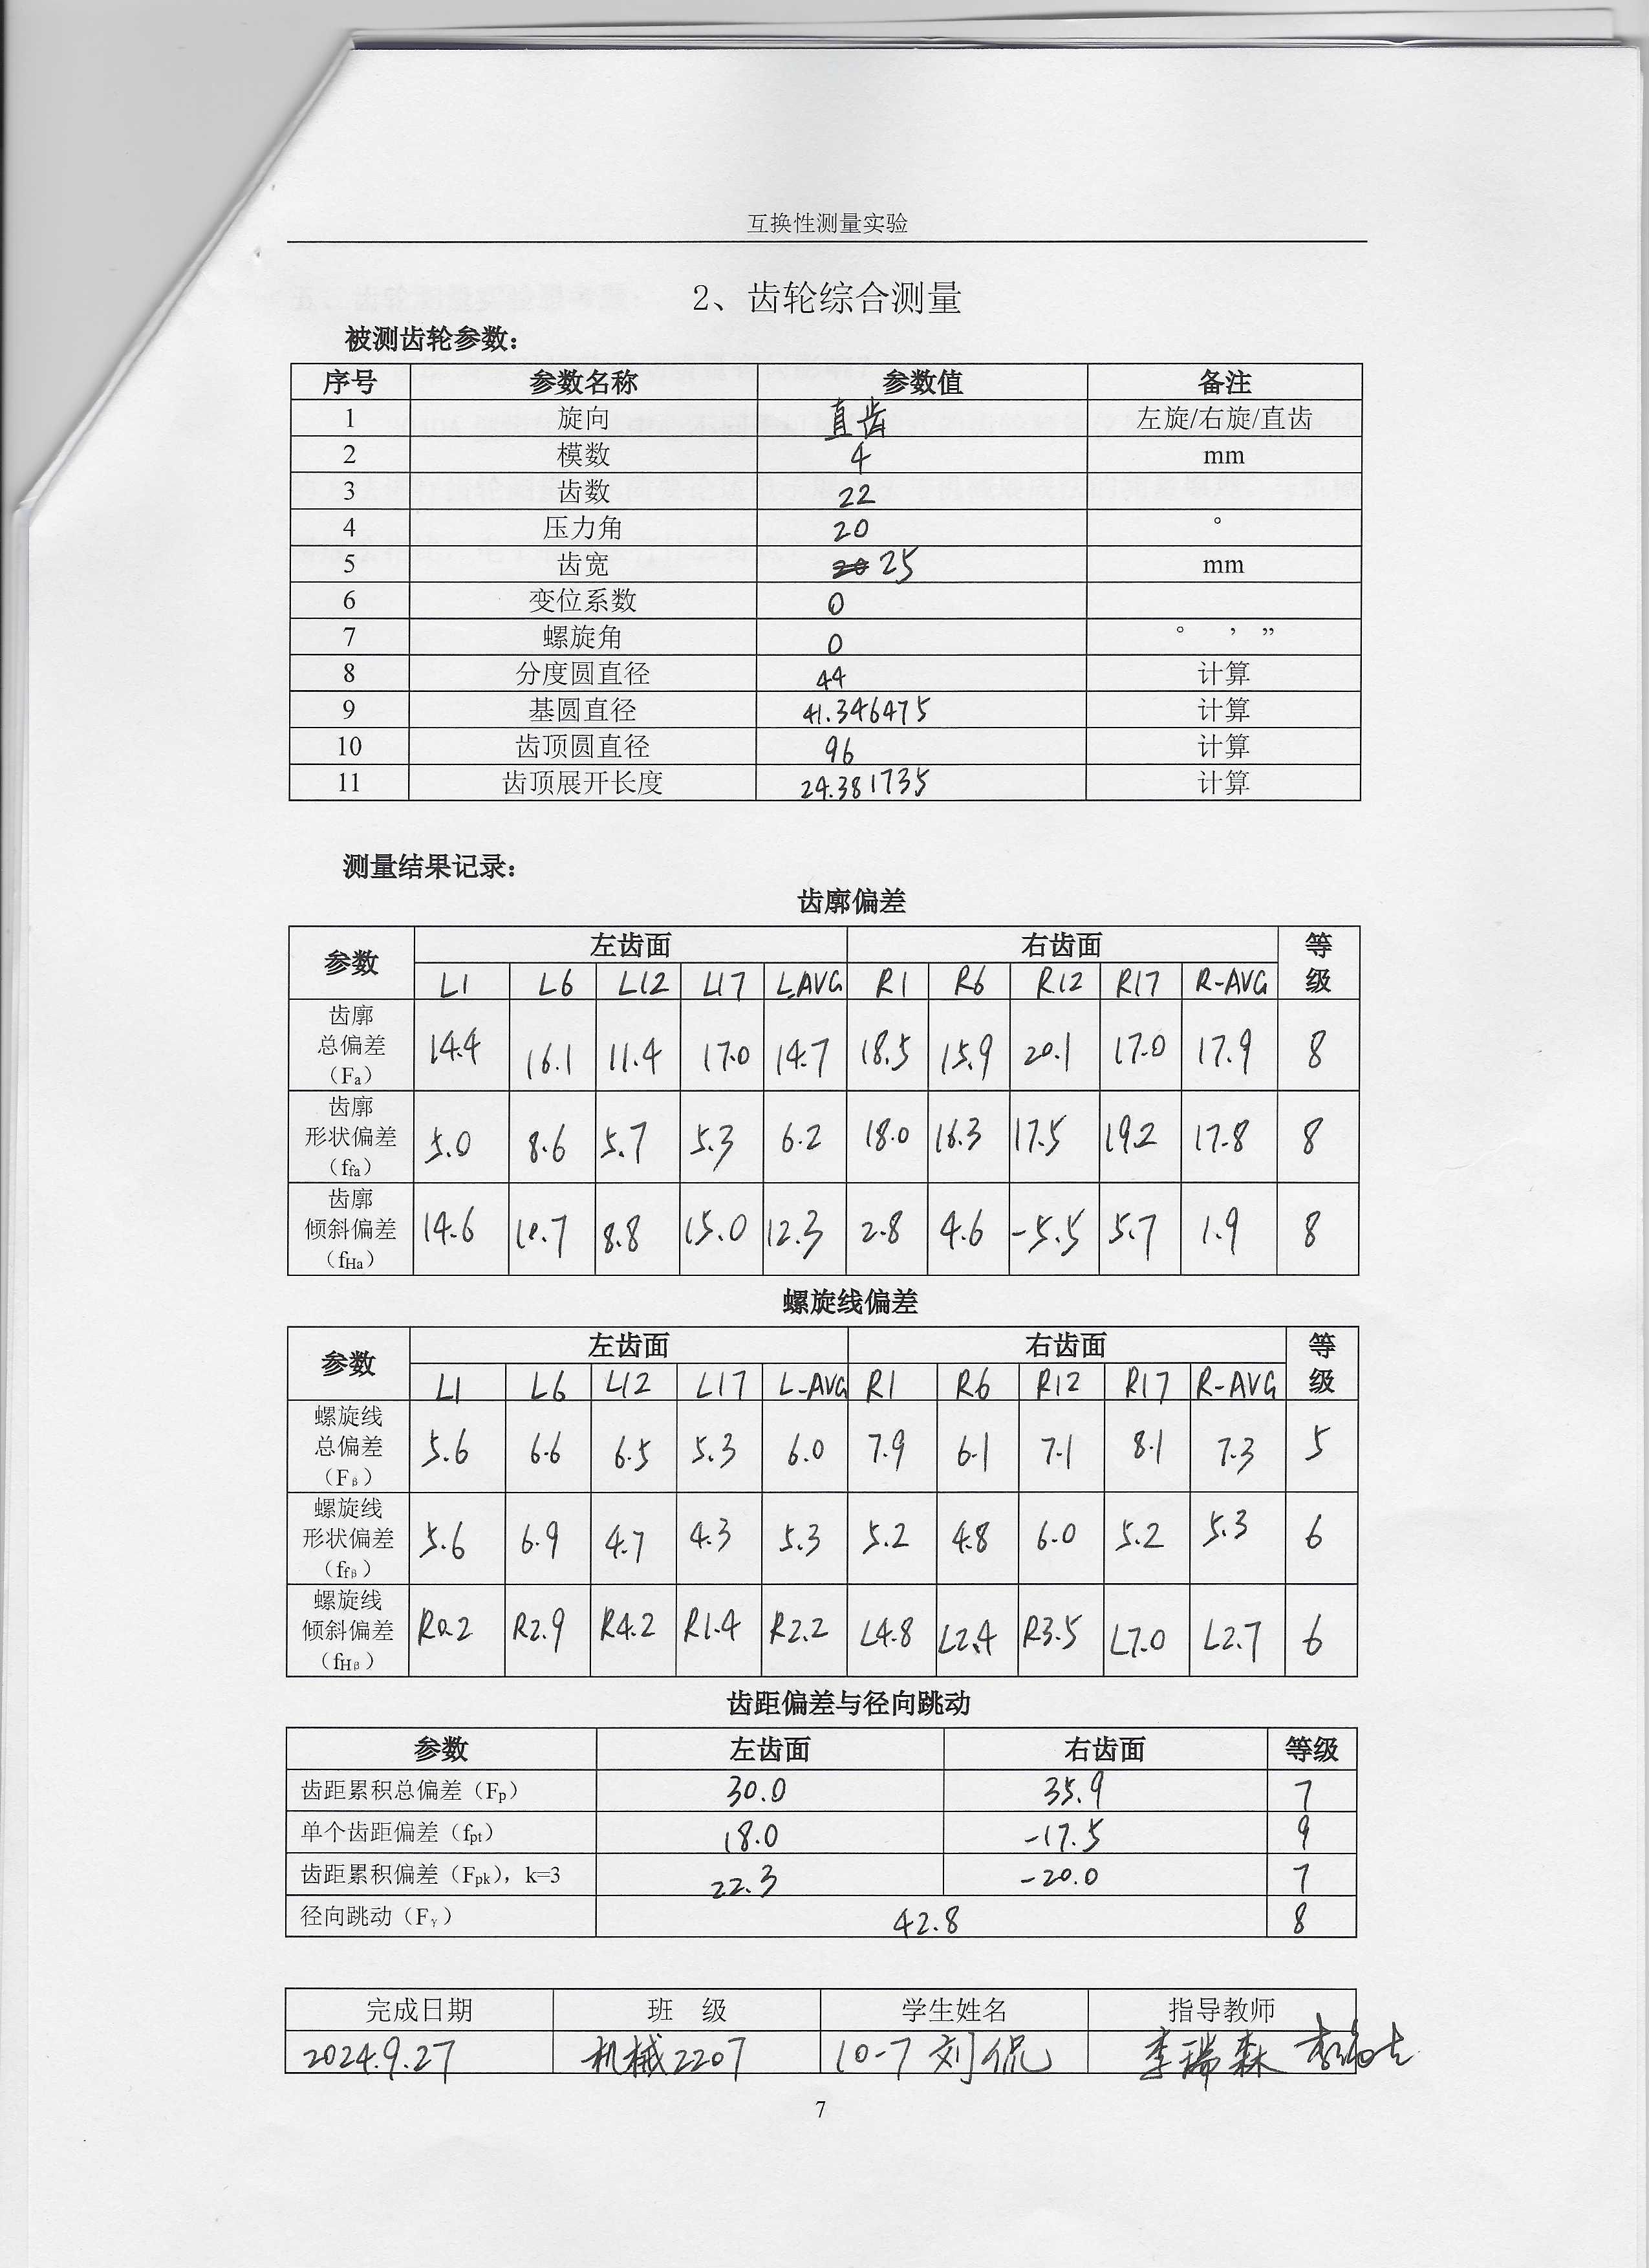 互换性测量实验
2、齿轮综合测量
被测齿轮参数：
序号 参数名称 参数值 备注
1 旋向 直齿 左旋/右旋/直齿
2 模数 4 mm
3 齿数 22
4 压力角 20 °
5 齿宽 25 mm
6 变位系数 0
7 螺旋角 0 ° ’ ”
8 分度圆直径 44 计算
9 基圆直径 41.346475 计算
10 齿顶圆直径 96 计算
11 齿顶展开长度 24.381735 计算
测量结果记录：
齿廓偏差
参数 左齿面 右齿面 等级
L1 L6 L12 L17 L.AVG R1 R6 R12 R17 R-AVG
齿廓总偏差（Fa） 14.4 16.1 11.4 17.0 14.7 18.5 15.9 20.1 17.0 17.9 8
齿廓形状偏差（ffa） 5.0 8.6 5.7 5.3 6.2 18.0 16.3 17.5 19.2 17.8 8
齿廓倾斜偏差（fHa） 14.6 10.7 8.8 15.0 12.3 2.8 4.6 -5.5 5.7 1.9 8
螺旋线偏差
参数 左齿面 右齿面 等级
L1 L6 L12 L17 L-AVG R1 R6 R12 R17 R-AVG
螺旋线总偏差（Fβ） 5.6 6.6 6.5 5.3 6.0 7.9 6.1 7.1 8.1 7.3 5
螺旋线形状偏差（ffβ） 5.6 6.9 4.7 4.3 5.3 5.2 4.8 6.0 5.2 5.3 6
螺旋线倾斜偏差（fHβ） R0.2 R2.9 R4.2 R1.4 R2.2 L4.8 L2.4 R3.5 L7.0 L2.7 6
齿距偏差与径向跳动
参数 左齿面 右齿面 等级
齿距累积总偏差（Fp） 30.0 35.9 7
单个齿距偏差（fpt） 18.0 -17.5 9
齿距累积偏差（Fpk），k=3 22.3 -20.0 7
径向跳动（Fγ） 42.8 8
完成日期 班 级 学生姓名 指导教师
2024.9.27 机械2207 10-7 刘侃 李瑞森
7